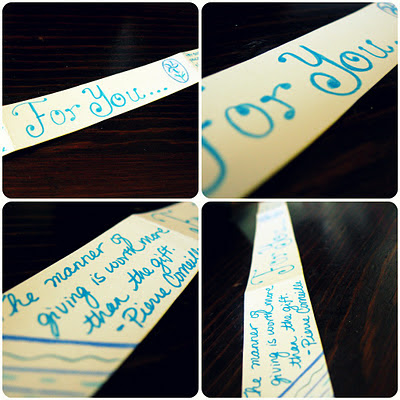 For You...
For You.
he manner of
giving is worth more
than the gift.
-Pierre Corneille
For You
he manner of
giving is worth more
than the gift.
-Pierre Corneille